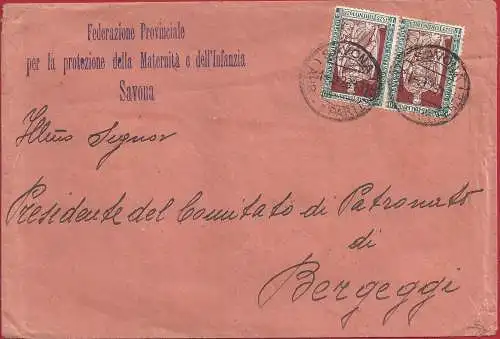 Federazione Provinciale
per la protezione della Maternità e dell'Infanzia
Savona
Illmo Signor
Presidente del Comitato di Patronato
di
Bergeggi